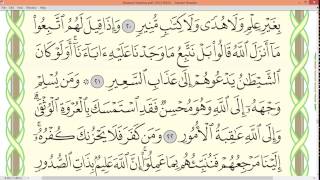 بِغَيْرِ عِلْمٍ وَلَا هُدًى وَلَا كِتَٰبٍ مُّنِيرٍ ٢٠ وَإِذَا قِيلَ لَهُمُ ٱتَّبِعُوا۟
مَآ أَنزَلَ ٱللَّهُ قَالُوا۟ بَلْ نَتَّبِعُ مَا وَجَدْنَا عَلَيْهِ ءَابَآءَنَآ أَوَلَوْ كَانَ
ٱلشَّيْطَٰنُ يَدْعُوهُمْ إِلَىٰ عَذَابِ ٱلسَّعِيرِ ٢١ ۞ وَمَن يُسْلِمْ
وَجْهَهُۥٓ إِلَى ٱللَّهِ وَهُوَ مُحْسِنٌ فَقَدِ ٱسْتَمْسَكَ بِٱلْعُرْوَةِ ٱلْوُثْقَىٰ
وَإِلَى ٱللَّهِ عَٰقِبَةُ ٱلْأُمُورِ ٢٢ وَمَن كَفَرَ فَلَا يَحْزُنكَ كُفْرُهُۥٓ
إِلَيْنَا مَرْجِعُهُمْ فَنُنَبِّئُهُم بِمَا عَمِلُوٓا۟ إِنَّ ٱللَّهَ عَلِيمٌۢ بِذَاتِ ٱلصُّدُورِ